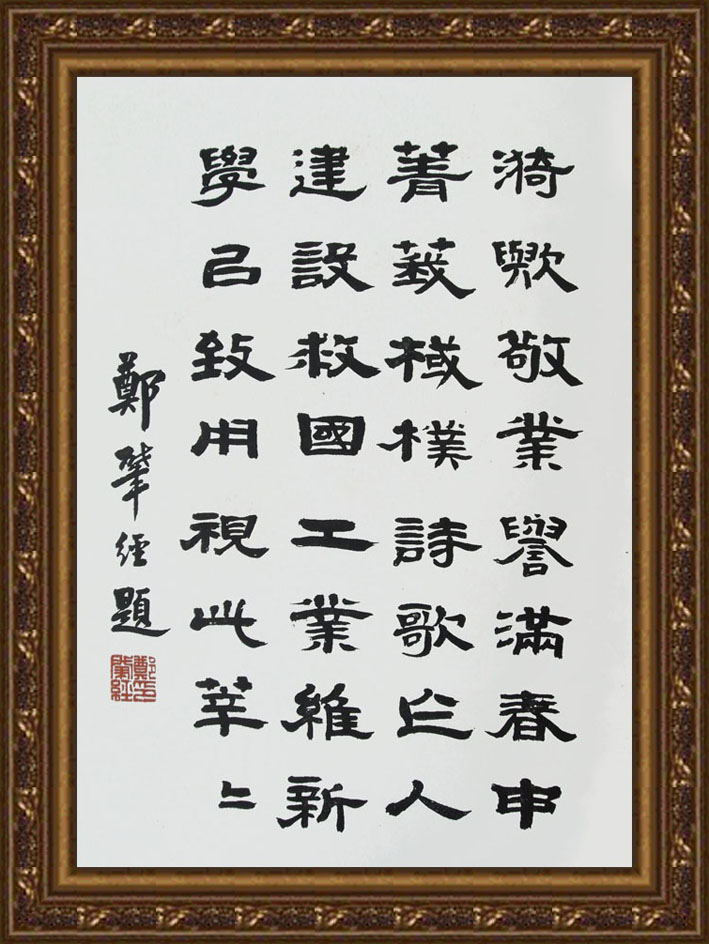 漪歟敬業譽滿春申
菁莪棫樸詩歌乍人
建設救國工業維新
學㠯致用視此莘〻
鄭肇經題
鄭印肇經